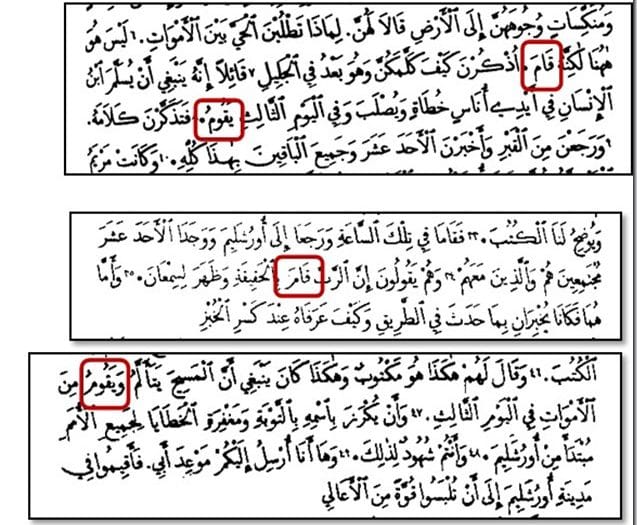 وَمُنَكِّسَاتٍ وُجُوهَهُنَّ إِلَى الْأَرْضِ قَالَا لَهُنَّ. لِمَاذَا تَطْلُبْنَ الْحَيَّ بَيْنَ الْأَمْوَاتِ. ٦ لَيْسَ هُوَ
هٰهُنَا لٰكِنَّهُ قَامَ. اُذْكُرْنَ كَيْفَ كَلَّمَكُنَّ وَهُوَ بَعْدُ فِي الْجَلِيلِ ٧ قَائِلًا إِنَّهُ يَنْبَغِي أَنْ يُسَلَّمَ ابْنُ
الْإِنْسَانِ فِي أَيْدِي أُنَاسٍ خُطَاةٍ وَيُصْلَبَ وَفِي الْيَوْمِ الثَّالِثِ يَقُومُ. ٨ فَتَذَكَّرْنَ كَلَامَهُ.
٩ وَرَجَعْنَ مِنَ الْقَبْرِ وَأَخْبَرْنَ الْأَحَدَ عَشَرَ وَجَمِيعَ الْبَاقِينَ بِهٰذَا كُلِّهِ. ١٠ وَكَانَتْ مَرْيَمُ
وَيُوضِحُ لَنَا الْكُتُبَ. ٣٣ فَقَامَا فِي تِلْكَ السَّاعَةِ وَرَجَعَا إِلَى أُورُشَلِيمَ وَوَجَدَا الْأَحَدَ عَشَرَ
مُجْتَمِعِينَ هُمْ وَالَّذِينَ مَعَهُمْ ٣٤ وَهُمْ يَقُولُونَ إِنَّ الرَّبَّ قَامَ بِالْحَقِيقَةِ وَظَهَرَ لِسِمْعَانَ. ٣٥ وَأَمَّا
هُمَا فَكَانَا يُخْبِرَانِ بِمَا حَدَثَ فِي الطَّرِيقِ وَكَيْفَ عَرَفَاهُ عِنْدَ كَسْرِ الْخُبْزِ
الْكُتُبَ. ٤٦ وَقَالَ لَهُمْ هٰكَذَا هُوَ مَكْتُوبٌ وَهٰكَذَا كَانَ يَنْبَغِي أَنَّ الْمَسِيحَ يَتَأَلَّمُ وَيَقُومُ مِنَ
الْأَمْوَاتِ فِي الْيَوْمِ الثَّالِثِ. ٤٧ وَأَنْ يُكْرَزَ بِاسْمِهِ بِالتَّوْبَةِ وَمَغْفِرَةِ الْخَطَايَا لِجَمِيعِ الْأُمَمِ
مُبْتَدَأً مِنْ أُورُشَلِيمَ. ٤٨ وَأَنْتُمْ شُهُودٌ لِذٰلِكَ. ٤٩ وَهَا أَنَا أُرْسِلُ إِلَيْكُمْ مَوْعِدَ أَبِي. فَأَقِيمُوا فِي
مَدِينَةِ أُورُشَلِيمَ إِلَى أَنْ تُلْبَسُوا قُوَّةً مِنَ الْأَعَالِي